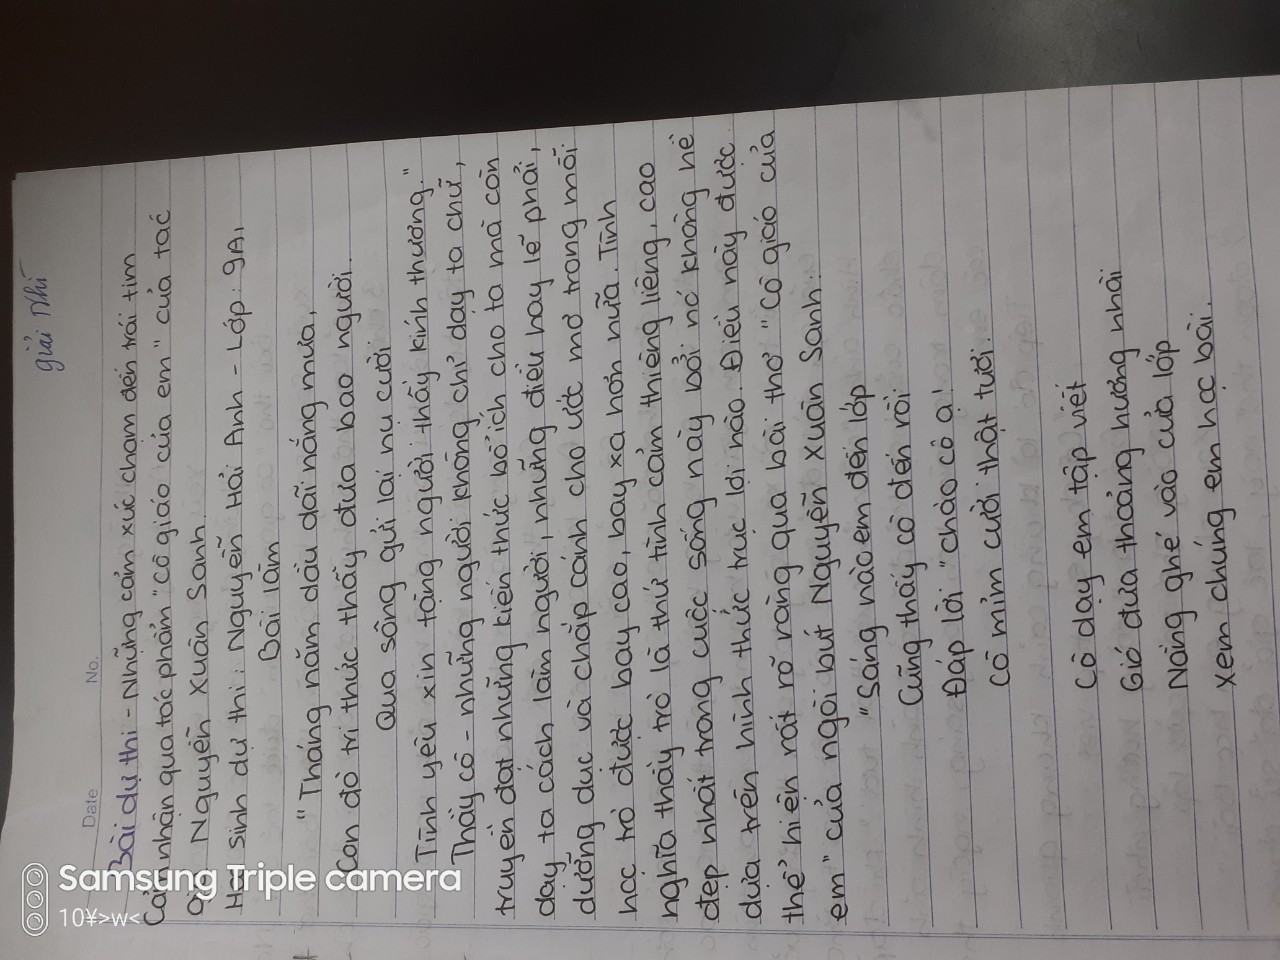 giải Nhì
Date No.
Bài dự thi - Những cảm xúc chạm đến trái tim
Cảm nhận qua tác phẩm "cô giáo của em" của tác
giả Nguyễn Xuân Sanh.
Học sinh dự thi: Nguyễn Hải Anh - Lớp: 9A1
Bài làm
"Tháng năm dầu dãi nắng mưa,
Con đò trí thức thầy đưa bao người.
Qua sông gửi lại nụ cười
Tình yêu xin tặng người thầy kính thương."
Thầy cô - những người không chỉ dạy ta chữ,
truyền đạt những kiến thức bổ ích cho ta mà còn
dạy ta cách làm người, những điều hay lẽ phải,
dưỡng dục và chắp cánh cho ước mơ trong mỗi
học trò được bay cao, bay xa hơn nữa. Tình
nghĩa thầy trò là thứ tình cảm thiêng liêng, cao
đẹp nhất trong cuộc sống này bởi nó không hề
dựa trên hình thức trục lợi nào. Điều này được
thể hiện rất rõ ràng qua bài thơ "Cô giáo của
em" của ngòi bút Nguyễn Xuân Sanh:
"Sáng nào em đến lớp
Cũng thấy cô đến rồi
Đáp lời "chào cô ạ!
Cô mỉm cười thật tươi.
Cô dạy em tập viết
Gió đưa thoảng hương nhài
Nắng ghé vào cửa lớp
Xem chúng em học bài.
Samsung Triple camera
10¥>w<